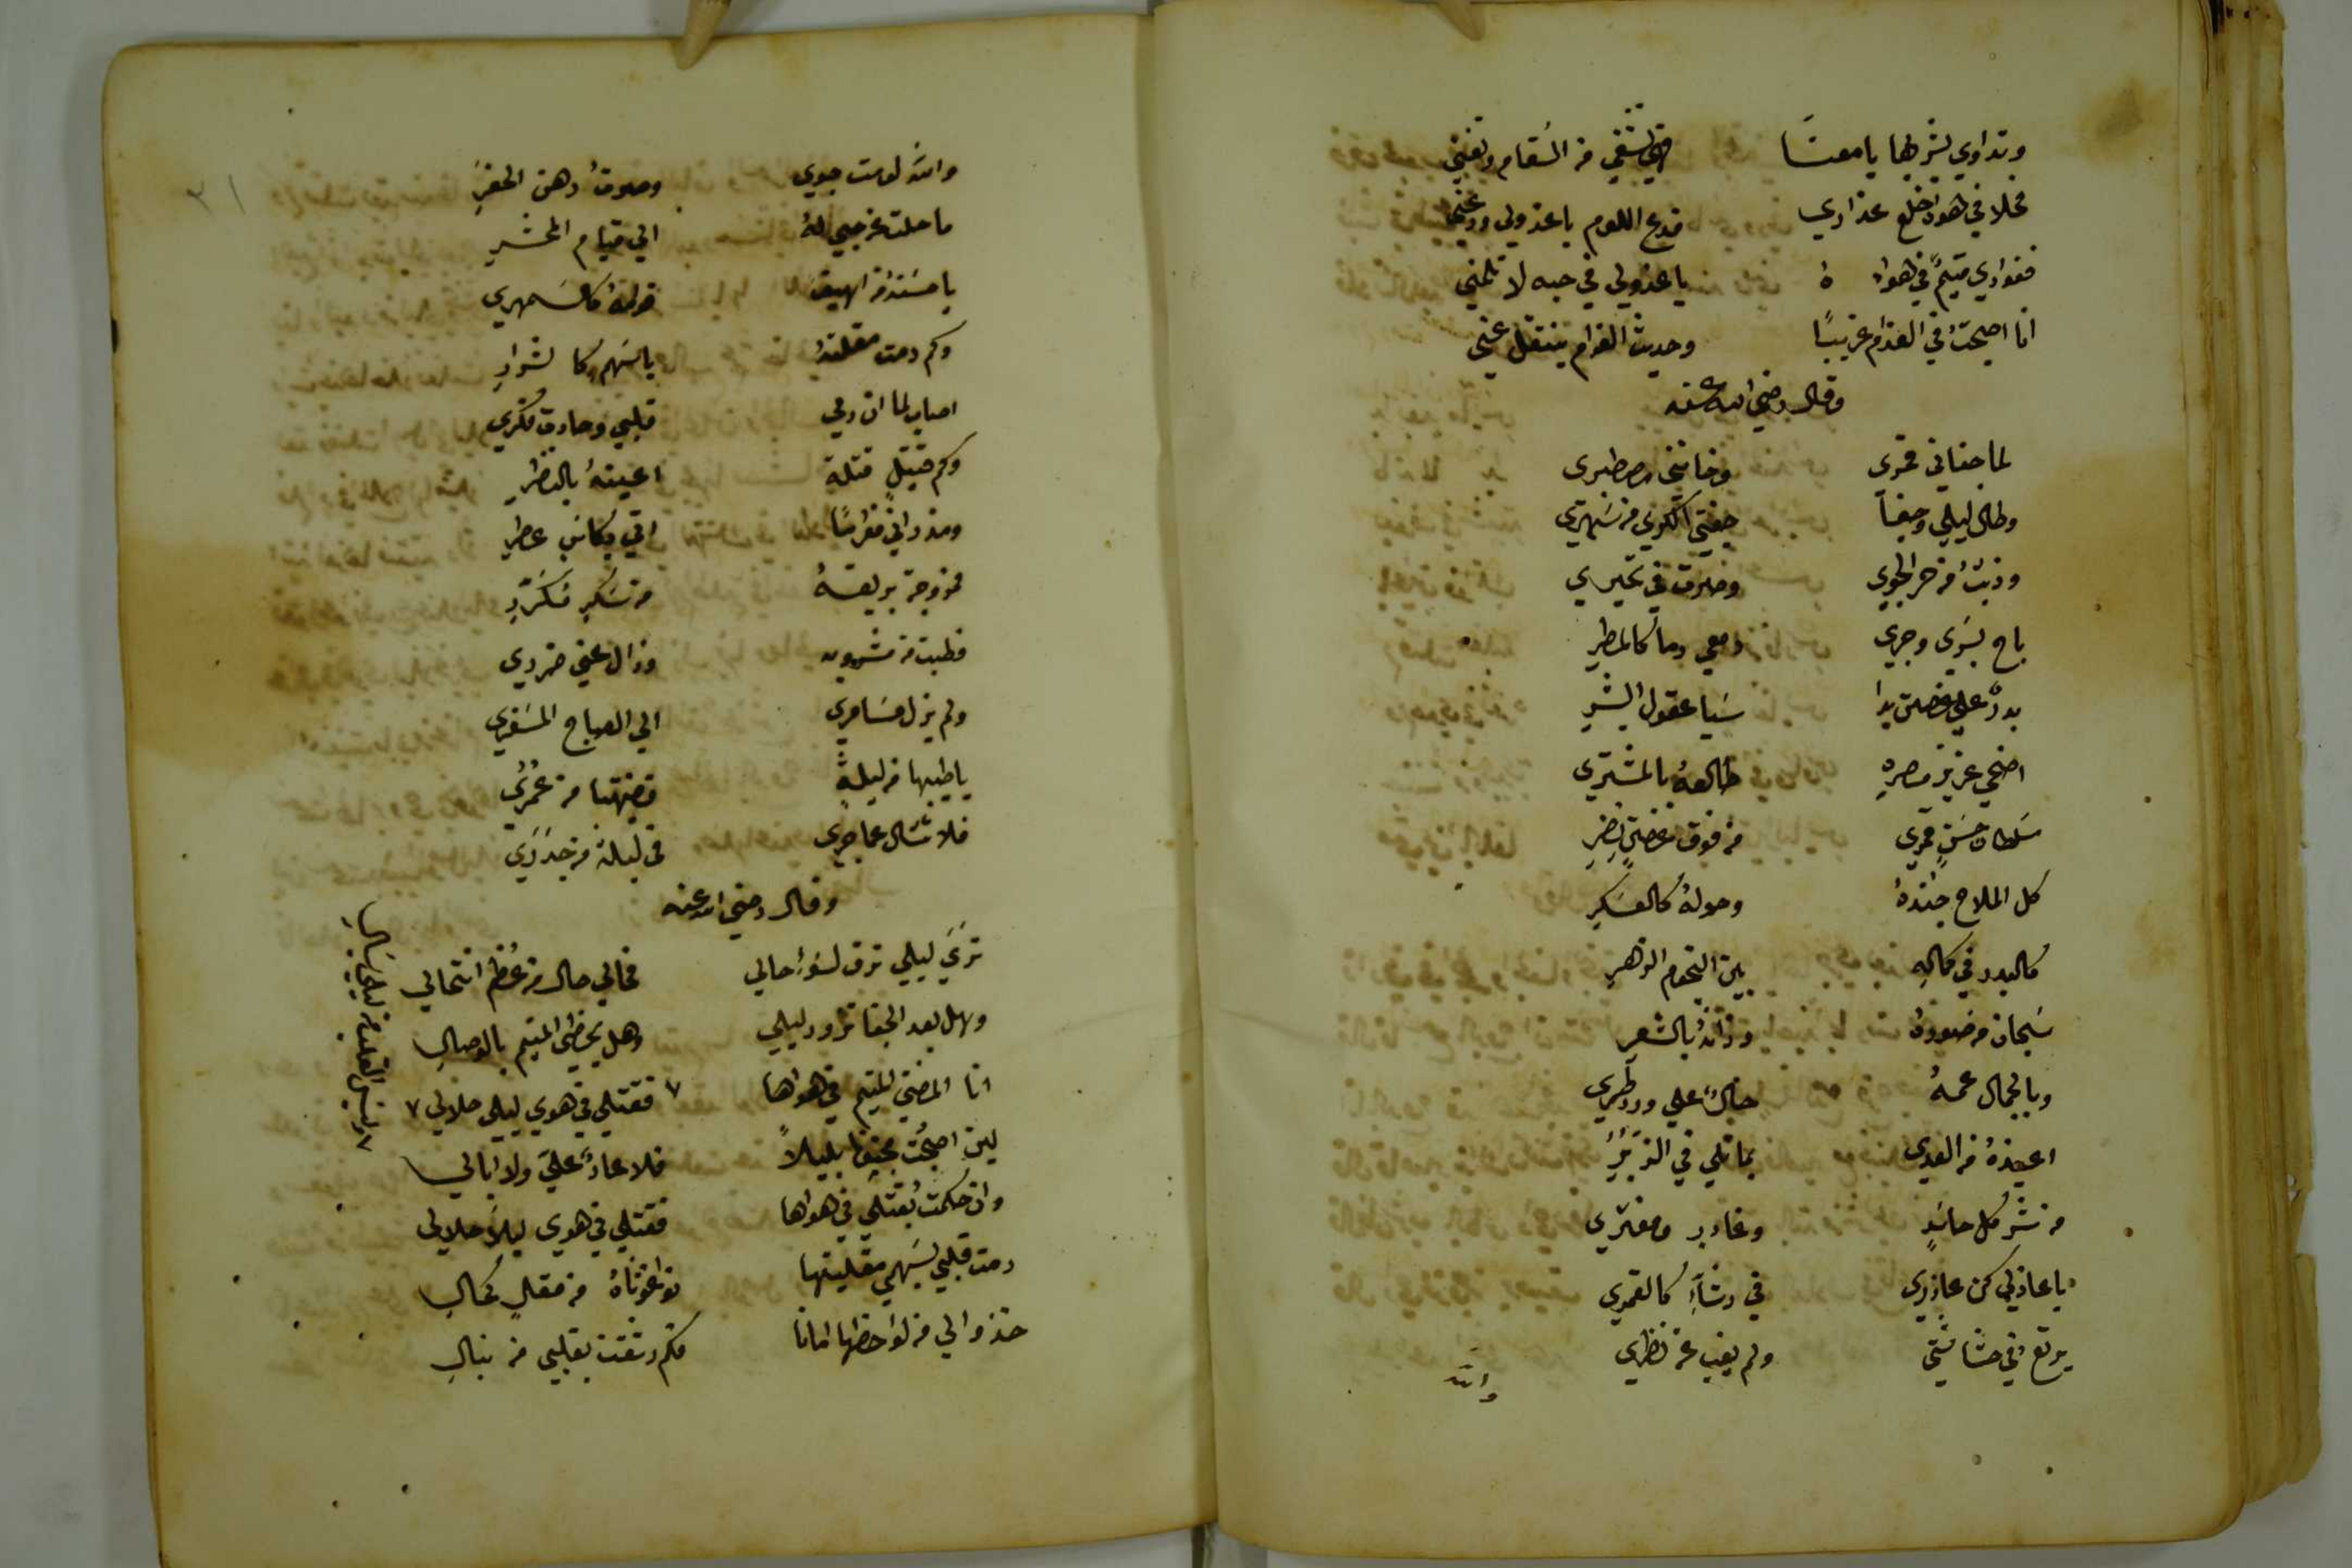 وتداوي بشربها يا معنا فهي تشفي من السقام وتغني
فحلا في هواه خلع عذاري فدع اللوم يا عذولي ودعني
ففوادي متيم في هواه يا عذولي في حبه لا تلمني
انا اصبحت في الغرام غريبًا وحديث الغرام ينقل عني
وقال رضي الله عنه
لما جفاني قمري وخانني مصطبري
وطال ليلي وجفا جفني الكرى من سهري
وذبت من حر الجوي وصرت في تحيري
باح بسري وجري دمعي دما كالمطر
بدرٌ على غصن بدا سبا عقول البشر
اضحي عزيز مصره طالعه بالمشتري
سلطان حسن قمري من فوق غصن نضر
كل الملاح جنده وحوله كالعسكر
كالبدر في كماله بين النجوم الزهر
سبحان من صوره وزانه بالشعر
وبالجمال عمه خال على ورد طري
اعيذه من العدي بما تلي في الزبر
من شر كل حاسد وغادر ومفتري
يا عاذلي كن عاذري في رشأ كالقمري
يرتع في حشاشتي ولم يغب عن نظري
والله
٣١
والله لو مت جوي وصرت رهن الحفر
ما حلت عن حبي له الي قيام المحشر
يا حسنه من اهيف قوامه كالسمهري
وكم رمت مقلته باسهم كالشرر
اصاب لما ان رمي قلبي وحارت فكري
وكم قتيل قتلة اعينه بالنظر
ومذ راني مغرمًا اتي بكاس عطر
ممزوجة بريقه من سكر مكرر
فطبت من مشروبه وزال عني ضرري
ولم يزل مسامري الي الصباح المسفري
يا طيبها من ليلة قضيتها من عمري
فلا تسال عما جري في ليلة من خدري
وقال رضي الله عنه
تري ليلي ترق لسوء حالي فحالي حال من عظم انتحالي
وهل بعد الجفا تزور ليلي وهل يحظي المتيم بالوصال
انا المضني المتيم في هواها ٧ فقتلي في هوي ليلي حلالي ٧
لين اصبحت مجنونا بليلا فلا عار علي ولا ابالي
وان حكمت بقتلي في هواها فقتلي في هوي ليلا حلالي
رمت قلبي بسهمي مقلتيها فوا غوثاه من مقل كحال
خذوا لي من لواحظها امانا فكم رشقت بقلبي من نبال